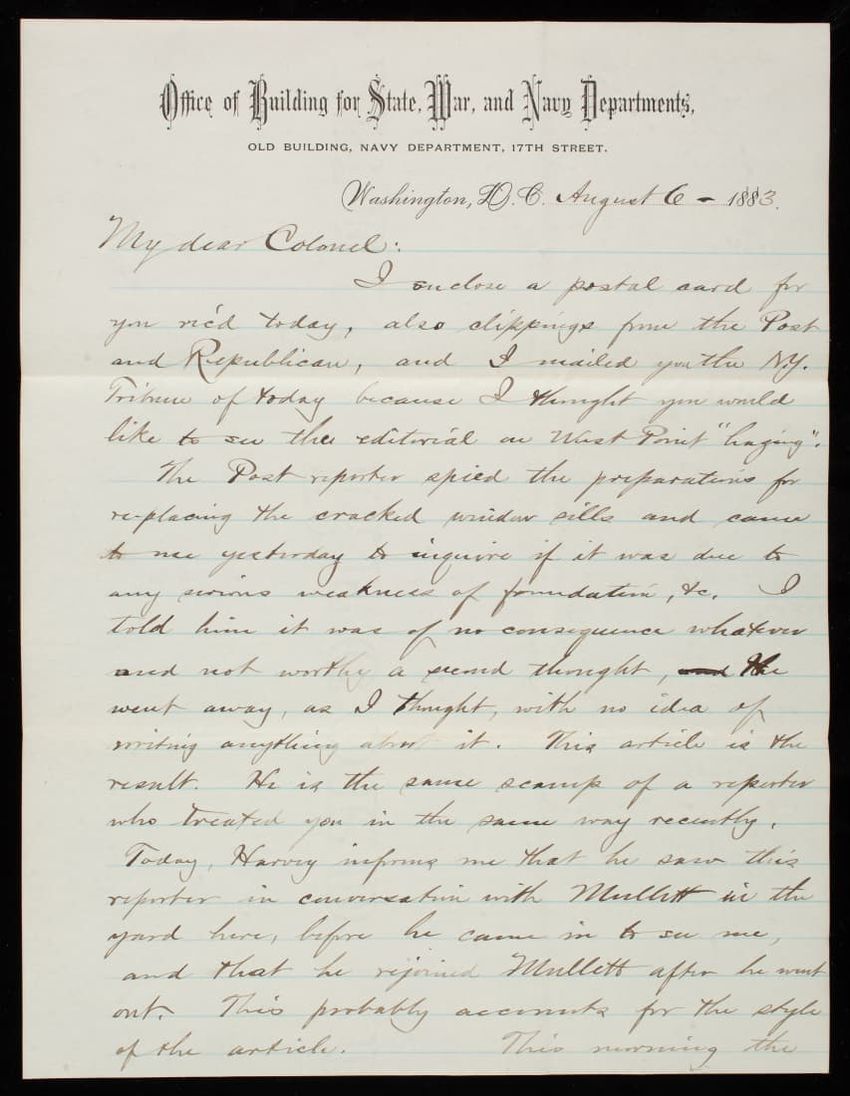 Office of Building for State, War, and Navy Departments,
OLD BUILDING, NAVY DEPARTMENT, 17TH STREET.
Washington, D.C. August 6 - 1883.
My dear Colonel:
I enclose a postal card for
you rec'd today, also clippings from the Post
and Republican, and I mailed you the N.Y.
Tribune of today because I thought you would
like to see the editorial on West Point "hazing".
The Post reporter spied the preparations for
re-placing the cracked window sills and came
to me yesterday to inquire if it was due to
any serious weakness of foundation, &c. I
told him it was of no consequence whatever
and not worthy a second thought, and He
went away, as I thought, with no idea of
writing anything about it. This article is the
result. He is the same scamp of a reporter
who treated you in the same way recently.
Today, Harvey informs me that he saw this
reporter in conversation with Mullett in the
yard here, before he came in to see me,
and that he rejoined Mullett after he went
out. This probably accounts for the style
of the article. This morning the